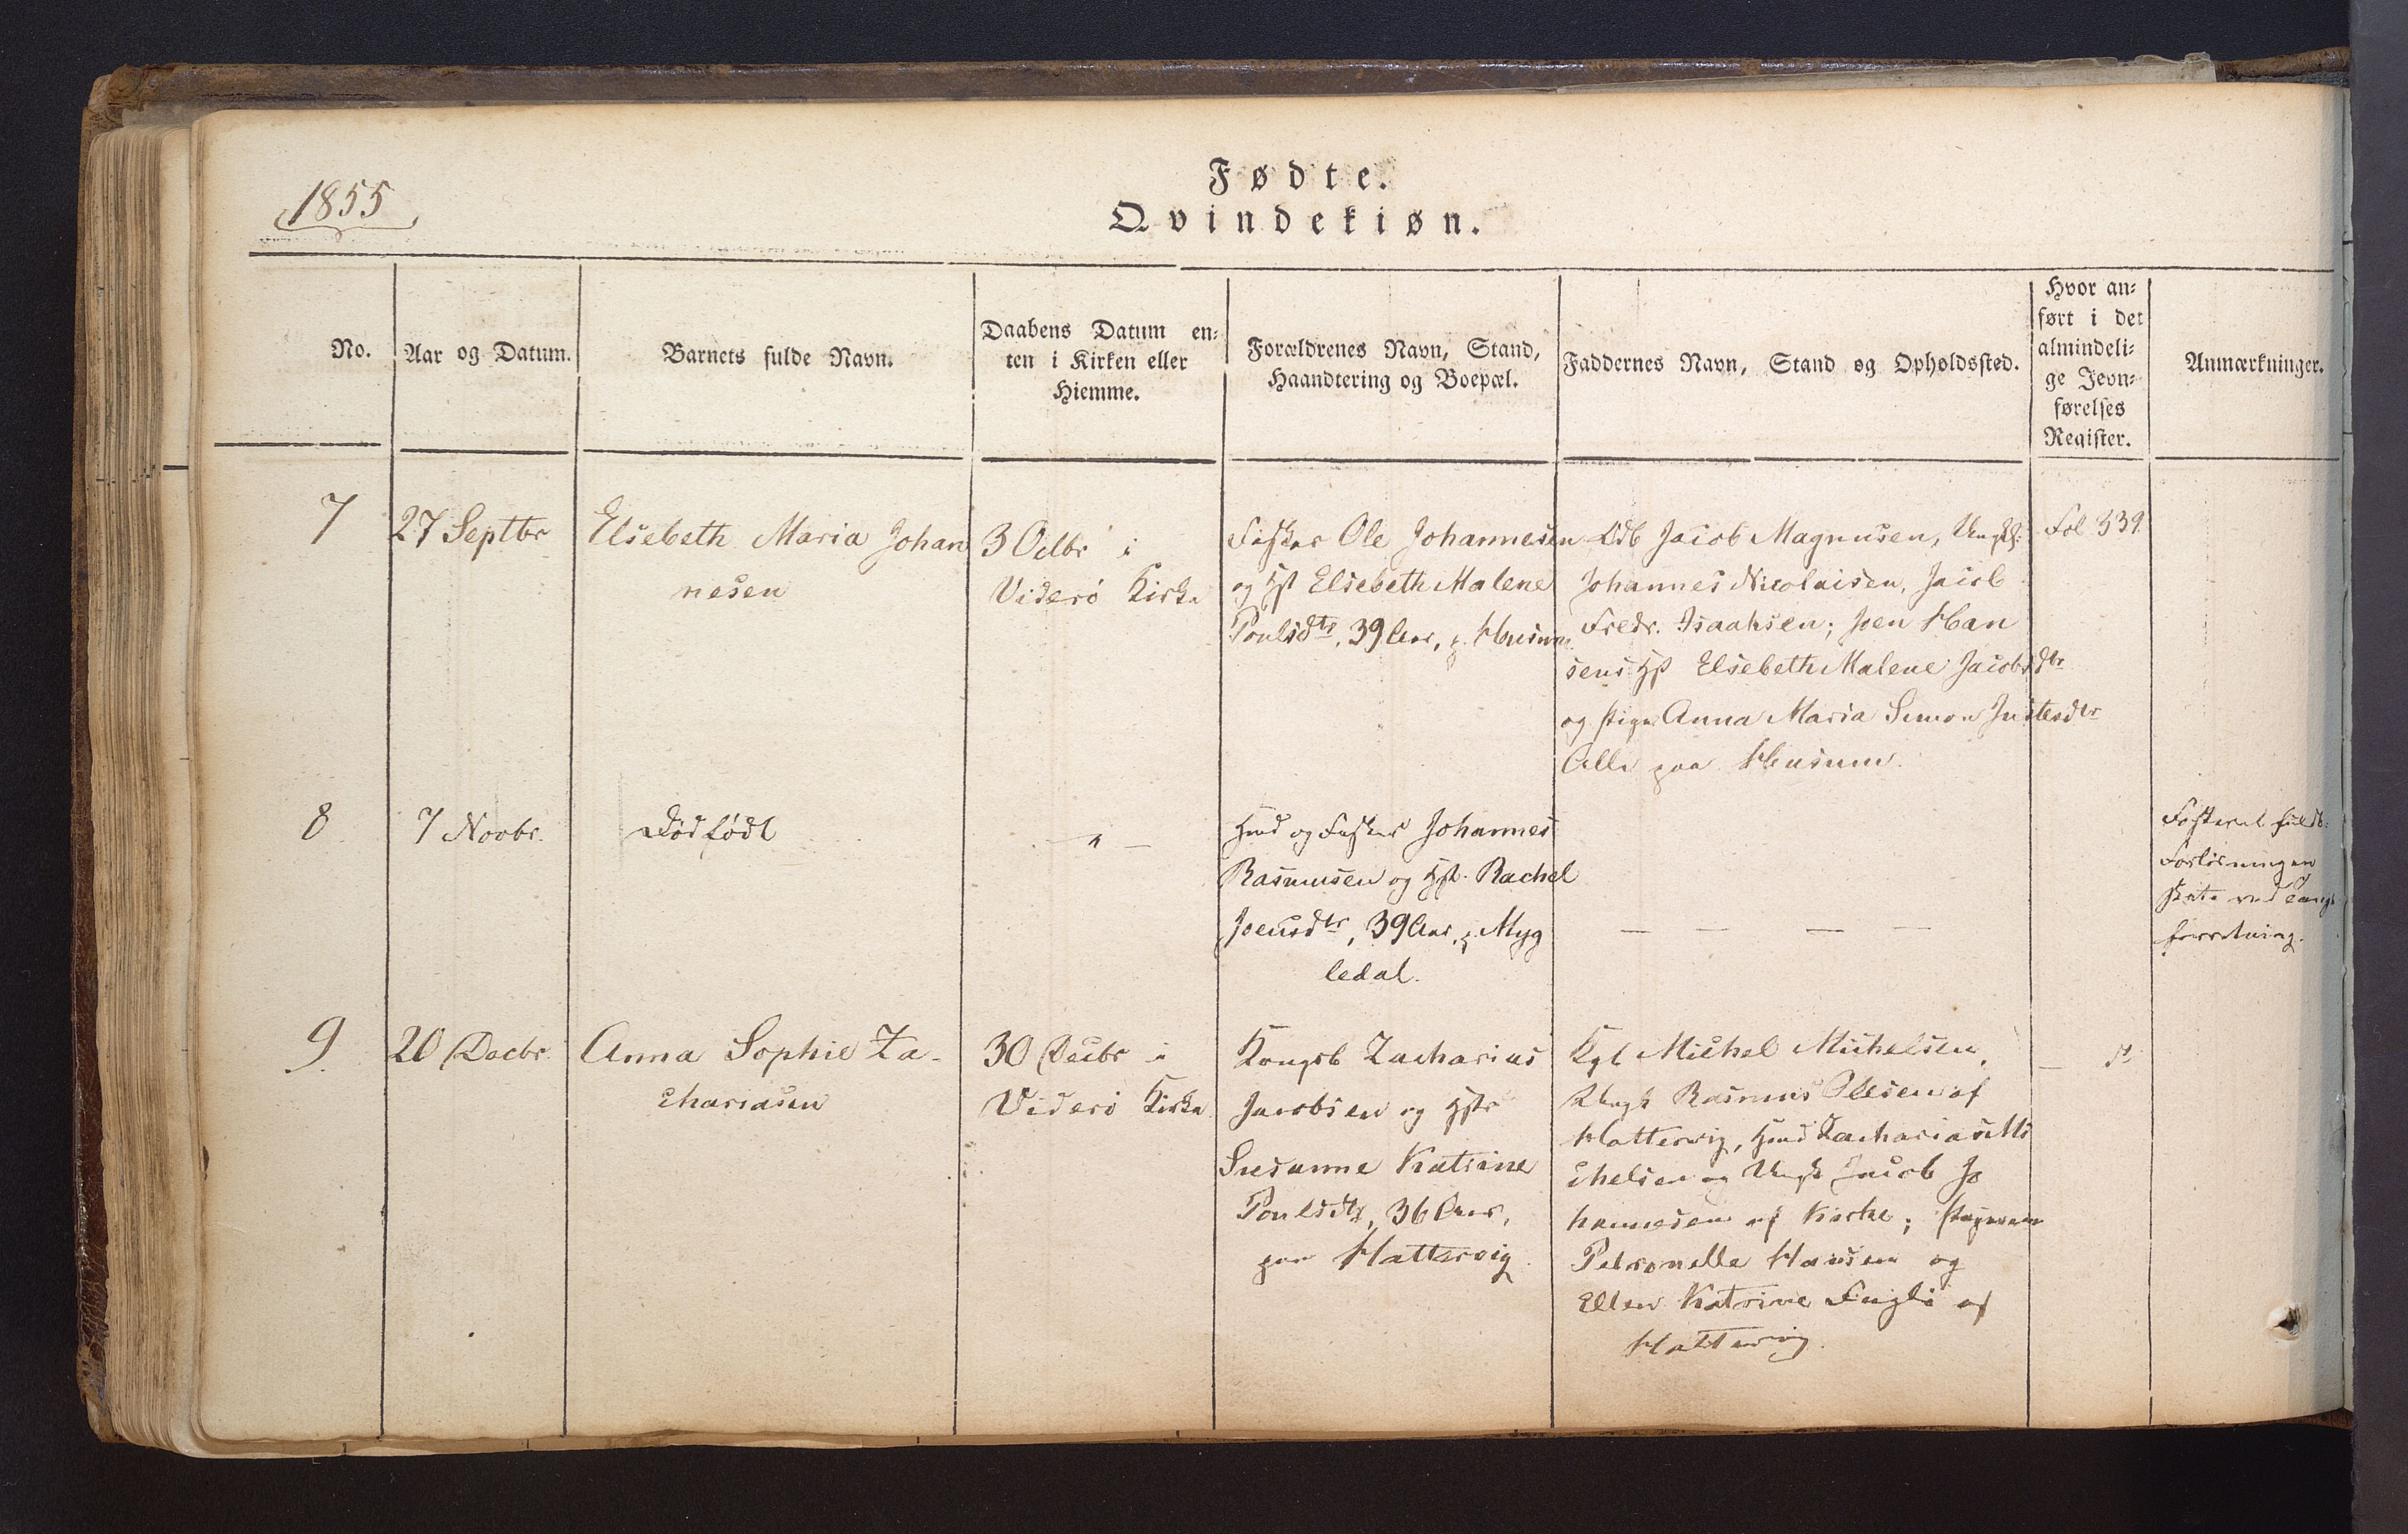 1855
Fødte.
Qvindekiøn.
No.
Aar og Datum.
Barnets fulde Navn.
Daabens Datum en-
ten i Kirken eller
Hiemme.
Forældrenes Navn, Stand,
Haandtering og Boepæl.
Faddernes Navn, Stand og Opholdssted.
Hvor an-
ført i det
almindeli-
ge Jevn-
førelses
Register.
Anmærkninger.
7
27 Septbr
Elsebeth Maria Johan
nesen
3 Octbr i
Viderö Kirke
Fæster Ole Johannesen
og Hst Elsebeth Malene
Poulsdtr, 39 Aar, p. Husum
Odb Jacob Magnusen, Ungk:
Johannes Nicolaisen, Jacob
Fredr. Isaaksen; Joen Han
sens Hst Elsebeth Malene Jacobsdtr
og Pige Anna Maria Simon Justesdtr
Alle paa Husum.
Fol 339
8
7 Novbr.
Dödfödt
— " —
Hmd og Fæster Johannes
Rasmusen og Hst. Rachel
Joensdtr, 39 Aar, p. Myg
ledal.
— — — —
Forlösningen
forretning.
9.
20 Decbr.
Anna Sophie Za-
chariasen
30 Decbr i
Viderö Kirke
Kongsb Zacharias
Jacobsen og Hstr
Susanne Katrine
Poulsdtr, 36 Aar,
paa Hattervig
Kgb Michel Michelsen,
Ungk Rasmus Olesen af
Hattervig, Hmd Zacharias Mi
chelsen og Ungk Jacob Jo
hannesen af Kirke; Pigerne
Petronelle Hansen og
Ellen Katrine Fuglö af
Hattervig.